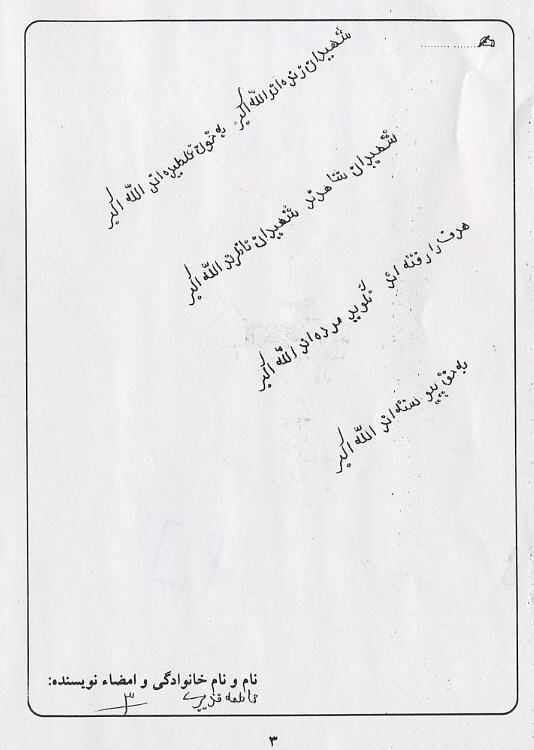 شهیدان زنده اند الله اکبر به خون غلطیده اند الله اکبر
شهیدان شاهدند شهیدان ناظرند الله اکبر
هدف را رفته اند نگوید مرده اند الله اکبر
به حق پیوسته اند الله اکبر
نام و نام خانوادگی و امضاء نویسنده:
فاطمه
۳